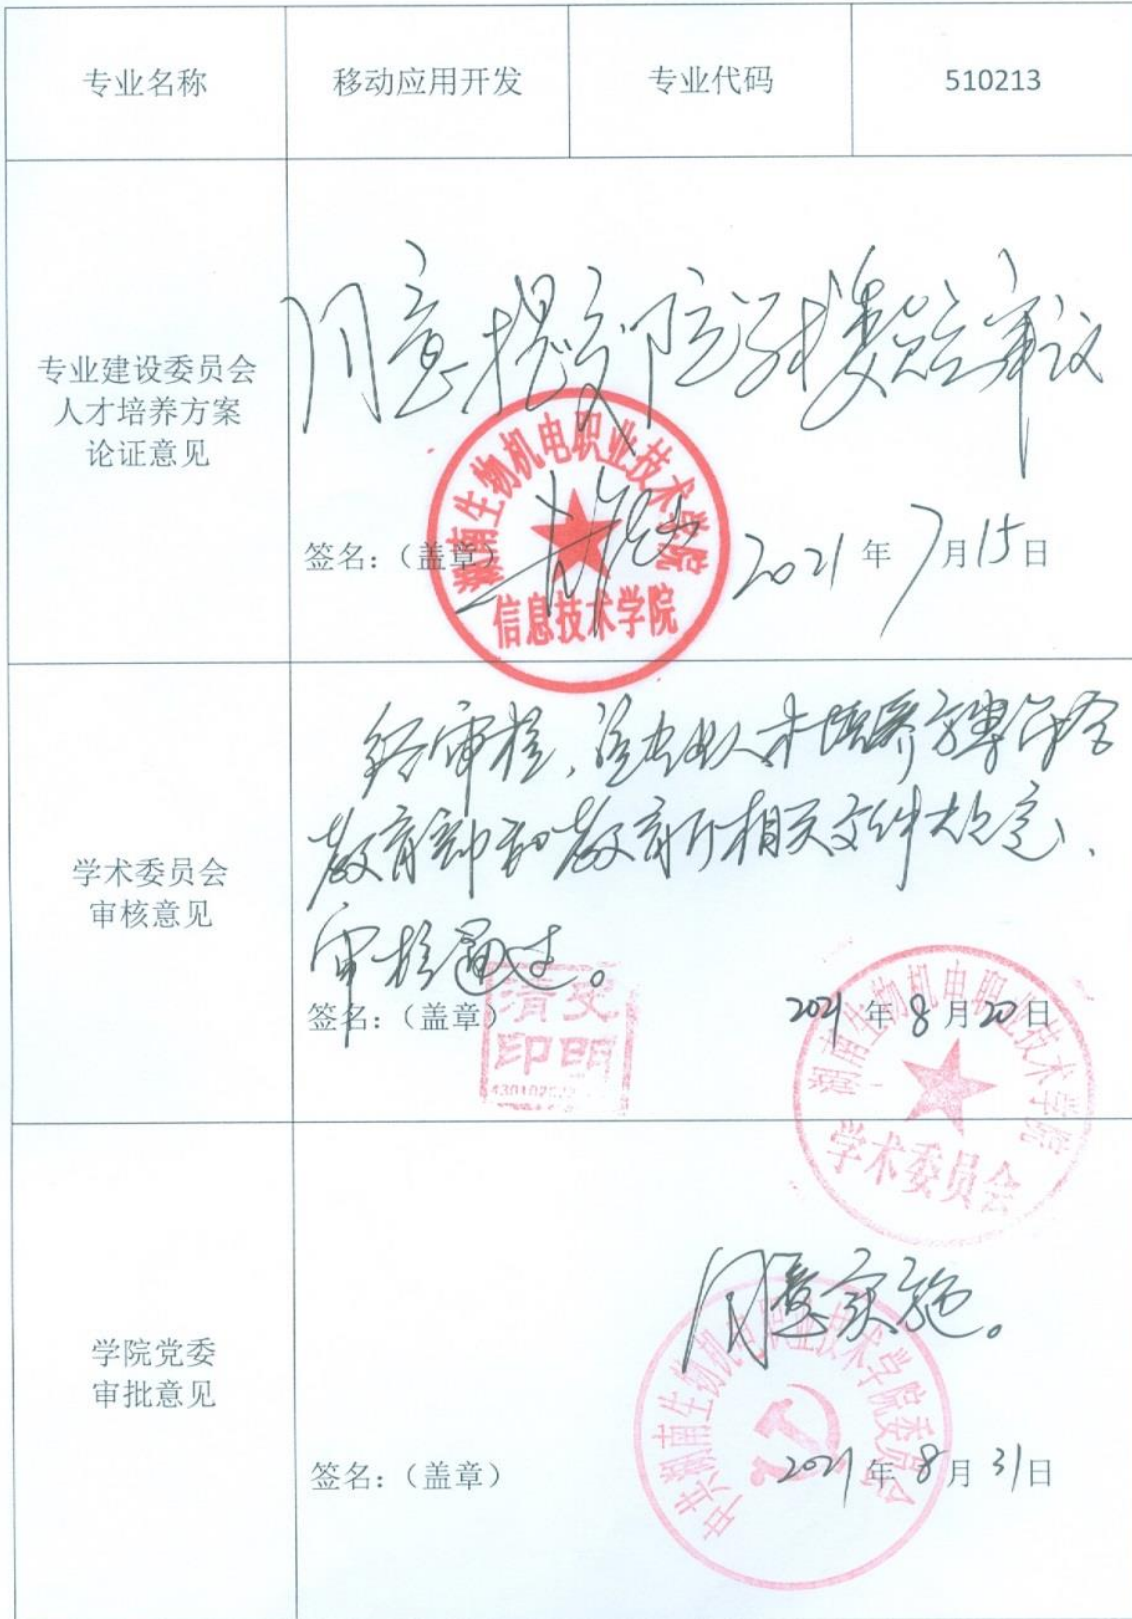 专业名称 移动应用开发 专业代码 510213
专业建设委员会
人才培养方案
论证意见
同意提交院学术委员会审议
湖南生物机电职业技术学院
信息技术学院
签名：（盖章） 2021年7月15日
学术委员会
审核意见
经审核，该专业人才培养方案符合
教育部和教育厅相关文件规定，
审核通过。
签名：（盖章） 2021年8月20日
印明
湖南生物机电职业技术学院
学术委员会
学院党委
审批意见
同意实施。
中共湖南生物机电职业技术学院委员会
签名：（盖章） 2021年8月31日